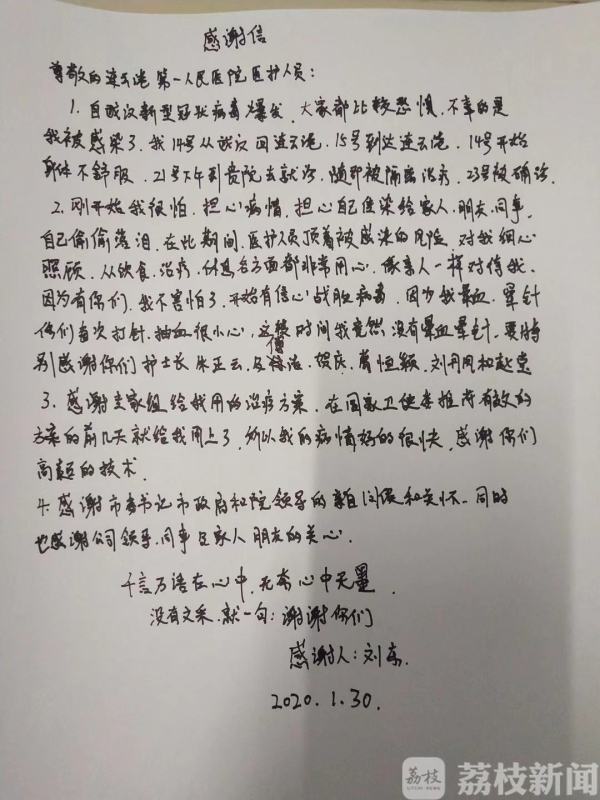 感谢信
尊敬的连云港第一人民医院医护人员：
1. 自武汉新型冠状病毒爆发，大家都比较恐惧，不幸的是
我被感染了，我14号从武汉回连云港，15号到达连云港，14号开始
身体不舒服，21号下午到贵院去就诊，随即被隔离治疗，23号被确诊。
2. 刚开始我很怕，担心病情，担心自己传染给家人、朋友、同事，
自己偷偷落泪，在此期间，医护人员顶着被感染的风险，对我细心
照顾，从饮食、治疗、休息各方面都非常用心，像亲人一样对待我，
因为有你们，我不害怕了，开始有信心战胜病毒，因为我晕血、晕针
你们每次打针、抽血很小心，这段时间我竟然没有晕血晕针，要特
别感谢你们护士长 朱正云、贺庆、葛恒颖、刘丹凤和赵
3. 感谢专家组给我用的治疗方案，在国家卫健委推荐有效的
方案的前几天就给我用上了，所以我的病情好的很快，感谢你们
高超的技术。
4. 感谢市委书记市政府和院领导的亲自问候和关怀、同时
也感谢公司领导、同事及家人朋友的关心。
千言万语在心中，无奈心中无墨
没有文采，就一句：谢谢你们
感谢人：刘东
2020.1.30.
荔枝
LITCHI NEWS
荔枝新闻